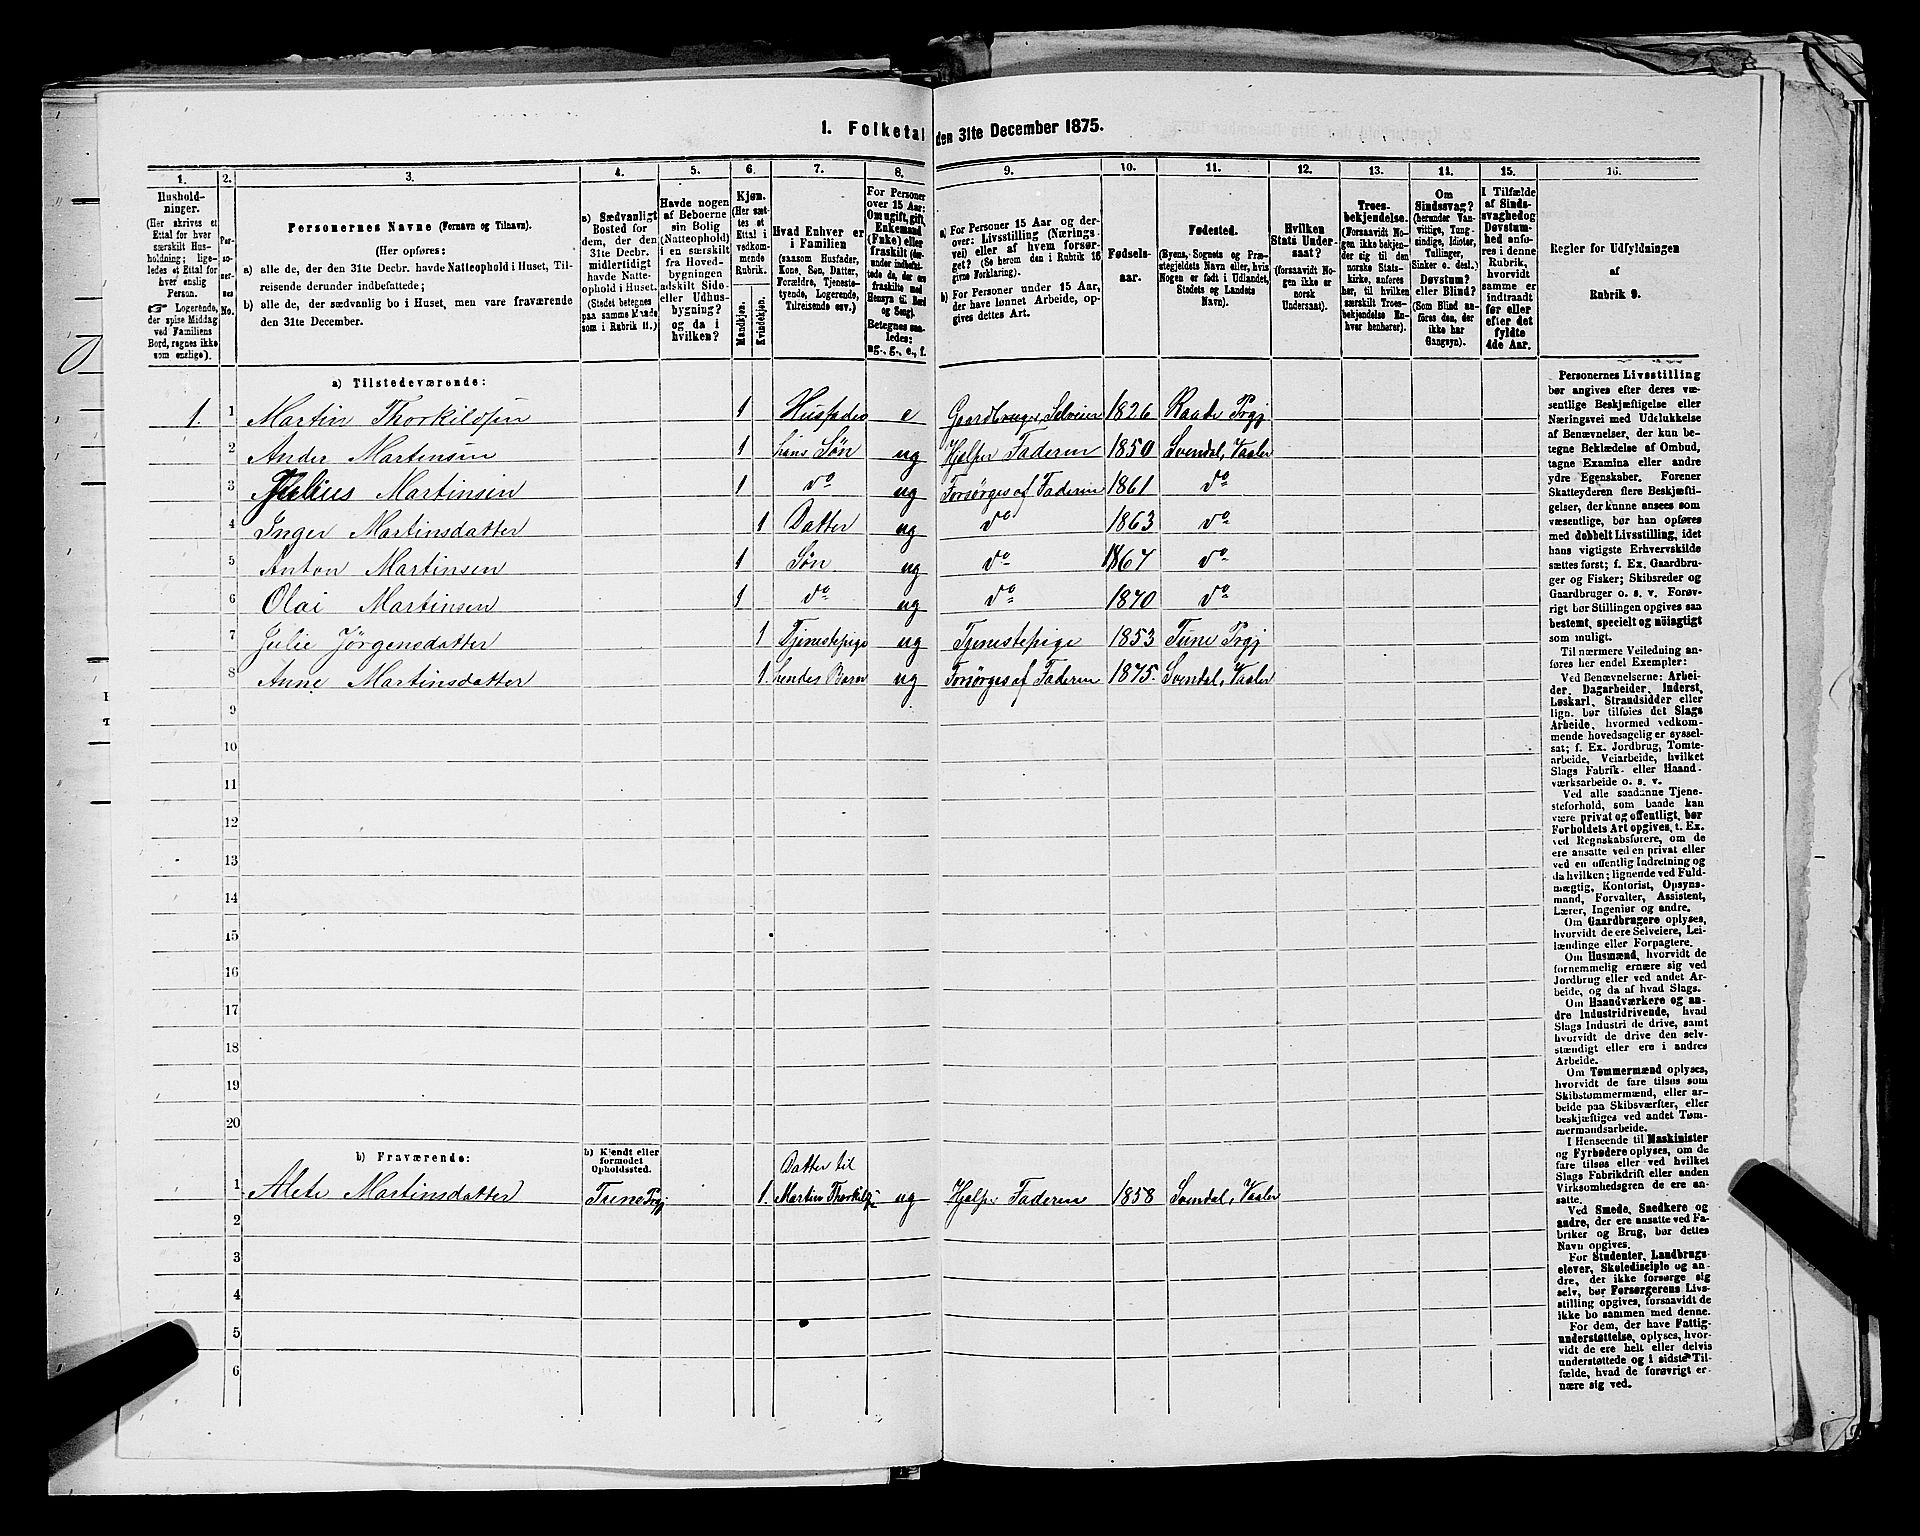 1. Folketal den 31te December 1875.
1. 2. 3. 4. 5. 6. 7. 8. 9. 10. 11. 12. 13. 14. 15. 16.
Hushold-
ninger.
(Her skrives et
Ettal for hver
særskilt Hus-
holdning; lige-
ledes et Ettal for
hver enslig
Person.
☞ Logerende,
der spise Middag
ved Familiens
Bord, regnes ikke
som enslige).
Per-
soner-
nes
No.
Personernes Navne (Fornavn og Tilnavn).
(Her opføres:
a) alle de, der den 31te Decbr. havde Natteophold i Huset, Til-
reisende derunder indbefattede;
b) alle de, der sædvanlig bo i Huset, men vare fraværende
den 31te December.
a) Sædvanligt
Bosted for
dem, der den
31te Decbr.
midlertidigt
havde Natte-
ophold i Huset.
(Stedet betegnes
paa samme Maade
som i Rubrik 11.)
Havde nogen
af Beboerne
sin Bolig
(Natteophold)
i en særskilt
fra Hoved-
bygningen
adskilt Side-
eller Udhus-
bygning?
og da i
hvilken?
Kjøn.
(Her sæt-
tes et
Ettal i
vedkom-
mende
Rubrik.
Mandkjøn.
Kvindekjøn.
Hvad Enhver er
i Familien
(saasom Husfader,
Kone, Søn, Datter,
Forældre, Tjeneste-
tyende, Logerende,
Tilreisende osv.)
For Personer
over 15 Aar:
Om ugift, gift,
Enkemand
(Enke) eller
fraskilt (der-
under indbefat-
tede de, der ere
fraskilte med
Hensyn til Bord
og Seng).
Betegnes saa-
ledes:
ug., g., e., f.
a) For Personer 15 Aar og der-
over: Livsstilling (Nærings-
vei) eller af hvem forsør-
get? (Se herom den i Rubrik 16
givne Forklaring).
b) For Personer under 15 Aar,
der have lønnet Arbeide, op-
gives dettes Art.
Fødsels-
aar.
Fødested.
(Byens, Sognets og Præ-
stegjeldets Navn eller, hvis
Nogen er født i Udlandet,
Stedets og Landets
Navn).
Hvilken
Stats Under-
saat?
(forsaavidt No-
gen ikke er
norsk
Undersaat).
Troes-
bekjendelse.
(Forsaavidt No-
gen ikke bekjen-
der sig til den
norske Stats-
kirke, anføres
her, til hvilken
særskilt Troes-
bekjendelse En-
hver henhører).
Om
Sindssvag?
(herunder Van-
vittige, Tung-
sindige, Idioter,
Tullinger,
Sinker o. desl.)
Døvstum?
eller Blind?
(Som Blind an-
føres den, der
ikke har
Gangsyn).
I Tilfælde
af Sinds-
svaghed og
Døvstum-
hed anfø-
res i denne
Rubrik,
hvorvidt
samme er
indtraadt
før eller
efter det
fyldte
4de Aar.
Regler for Udfyldningen
af
Rubrik 9.
a) Tilstedeværende:
1. 1 Martin Thorkildsen 1 Husfader e Gaardbruger, Selveier 1826 Raade Prgj
2 Ander Martinsen 1 hans Søn ug Hjelper Faderen 1850 Svendal, Vaaler
3 Julius Martinsen 1 do ug Forsørges af Faderen 1861 do
4 Inger Martinsdatter 1 Datter ug do 1863 do
5 Anton Martinsen 1 Søn ug do 1867 do
6 Olai Martinsen 1 do ug do 1870 do
7 Julie Jørgensdatter 1 Tjenestepige ug Tjenestepige 1853 Tune Prgj
8 Anne Martinsdatter 1. hendes Barn ug Forsørges af Faderen 1875. Svendal, Vaaler
9
10
11
12
13
14
15
16
17
18
19
20
b) Fraværende:
b) Kjendt eller
formodet
Opholdssted.
Datter til
1 Alete Martinsdatter Tune Prgj 1. Martin Thorkils- ug Hjelper Faderen 1858 Svendal, Vaaler
2
3
4
5
6
Personernes Livsstilling
bør angives efter deres væ-
sentlige Beskjæftigelse eller
Næringsvei med Udelukkelse
af Benævnelser, der kun be-
tegne Beklædelse af Ombud,
tagne Examina eller andre
ydre Egenskaber. Forener
Skatteyderen flere Beskjæfti-
gelser, der kunne ansees som
væsentlige, bør han opføres
med dobbelt Livsstilling, idet
hans vigtigste Erhvervskilde
sættes først; f. Ex. Gaardbru-
ger og Fisker; Skibsreder og
Gaardbruger o. s. v. Forøv-
rigt bør Stillingen opgives saa
bestemt, specielt og nøiagtigt
som muligt.
Til nærmere Veiledning an-
føres her endel Exempler:
Ved Benævnelserne: Arbei-
der, Dagarbeider, Inderst,
Løskarl, Strandsidder eller
lign. bør tilføies det Slags
Arbeide, hvormed vedkom-
mende hovedsagelig er syssel-
sat; f. Ex. Jordbrug, Tomte-
arbeide, Veiarbeide, hvilket
Slags Fabrik- eller Haand-
værksarbeide o. s. v.
Ved alle saadanne Tjene-
steforhold, som baade kan
være privat og offentligt, bør
Forholdets Art opgives, t. Ex.
ved Regnskabsførere, om de
ere ansatte ved en privat eller
ved en offentlig Indretning og
da hvilken; lignende ved Fuld-
mægtig, Kontorist, Opsyns-
mand, Forvalter, Assistent,
Lærer, Ingeniør og andre.
Om Gaardbrugere oplyses,
hvorvidt de ere Selveiere, Lei-
lændinge eller Forpagtere.
Om Husmænd, hvorvidt de
fornemmelig ernære sig ved
Jordbrug eller ved andet Ar-
beide, og da af hvad Slags.
Om Haandværkere og an-
dre Industridrivende, hvad
Slags Industri de drive, samt
hvorvidt de drive den selv-
stændigt eller ere i andres
Arbeide.
Om Tømmermænd oplyses,
hvorvidt de fare tilsøs som
Skibstømmermænd, eller ar-
beide paa Skibsværfter, eller
beskjæftiges ved andet Tøm-
mermandsarbeide.
I Henseende til Maskinister
og Fyrbødere oplyses, om de
fare tilsøs eller ved hvilket
Slags Fabrikdrift eller anden
Virksomhedsgren de ere an-
satte.
Ved Smede, Snedkere og
andre, der ere ansatte ved Fa-
briker og Brug, bør dettes
Navn opgives.
For Studenter, Landbrugs-
elever, Skoledisciple og an-
dre, der ikke forsørge sig
selv, bør Forsørgerens Livs-
stilling opgives, forsaavidt de
ikke bo sammen med denne.
For dem, der have Fattig-
understøttelse, oplyses, hvor-
vidt de ere helt eller delvis
understøttede og i sidste Til-
fælde, hvad de forøvrigt er-
nære sig ved.